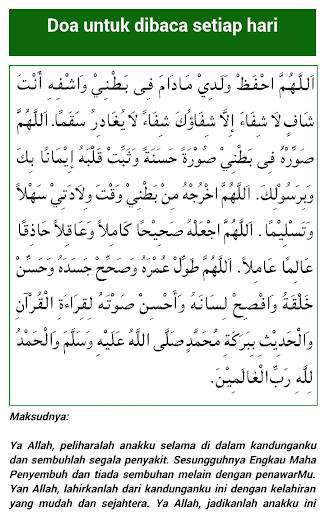 Doa untuk dibaca setiap hari
اَللَّهُمَّ احْفَظْ وَلَدِيْ مَادَامَ فِى بَطْنِيْ وَاشْفِهِ أَنْتَ
شَافٍ لَا شِفَاءَ إِلَّا شِفَاؤُكَ شِفَاءً لَا يُغَادِرُ سَقَمًا. اَللَّهُمَّ
صَوِّرْهُ فِى بَطْنِيْ صُوْرَةً حَسَنَةً وَثَبِّتْ قَلْبَهُ إِيْمَانًا بِكَ
وَبِرَسُوْلِكَ. اَللَّهُمَّ اخْرُجْهُ مِنْ بَطْنِيْ وَقْتَ وِلَادَتِيْ سَهْلاً
وَتَسْلِيْمًا . اَللَّهُمَّ اجْعَلْهُ صَحِيْحًا كَامِلاً وَعَاقِلاً حَاذِقًا
عَالِمًا عَامِلاً. اَللَّهُمَّ طَوِّلْ عُمْرَهُ وَصَحِّحْ جَسَدَهُ وَحَسِّنْ
خَلْقَهُ وَافْصِحْ لِسَانَهُ وَأَحْسِنْ صَوْتَهُ لِقِرَاءَةِ الْقُرْآنِ
وَالْحَدِيْثِ بِبَرَكَةِ مُحَمَّدٍ صَلَّى اللهُ عَلَيْهِ وَسَلَّمَ وَالْحَمْدُ
لِلَّهِ رَبِّ الْعَالَمِيْنَ.
Maksudnya:
Ya Allah, peliharalah anakku selama di dalam kandunganku
dan sembuhlah segala penyakit. Sesungguhnya Engkau Maha
Penyembuh dan tiada sembuhan melain dengan penawarMu.
Yan Allah, lahirkanlah dari kandunganku ini dengan kelahiran
yang mudah dan sejahtera. Ya Allah, jadikanlah anakku ini